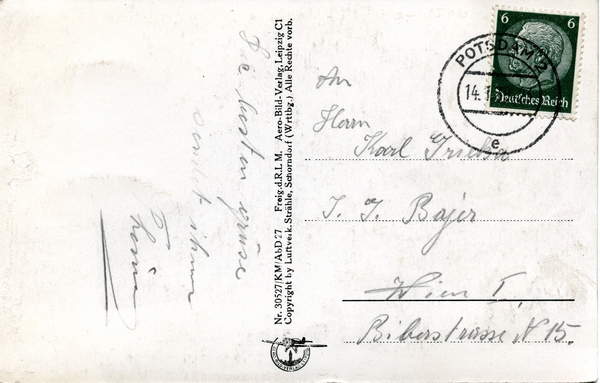 Die besten Grüsse
sendet ihnen
Nr. 30527/KM/AbD 27 Freig.d.R.L.M. Aero-Bild-Verlag, Leipzig C1
Copyright by Luftverk. Strähle, Schorndorf (Wrttbg.) Alle Rechte vorb.
6 6
Deutsches Reich
POTSDAM 2
14.1
e
An
Herrn
Karl
I. G. Bajer
Wien I.
Biberstrasse N 15.